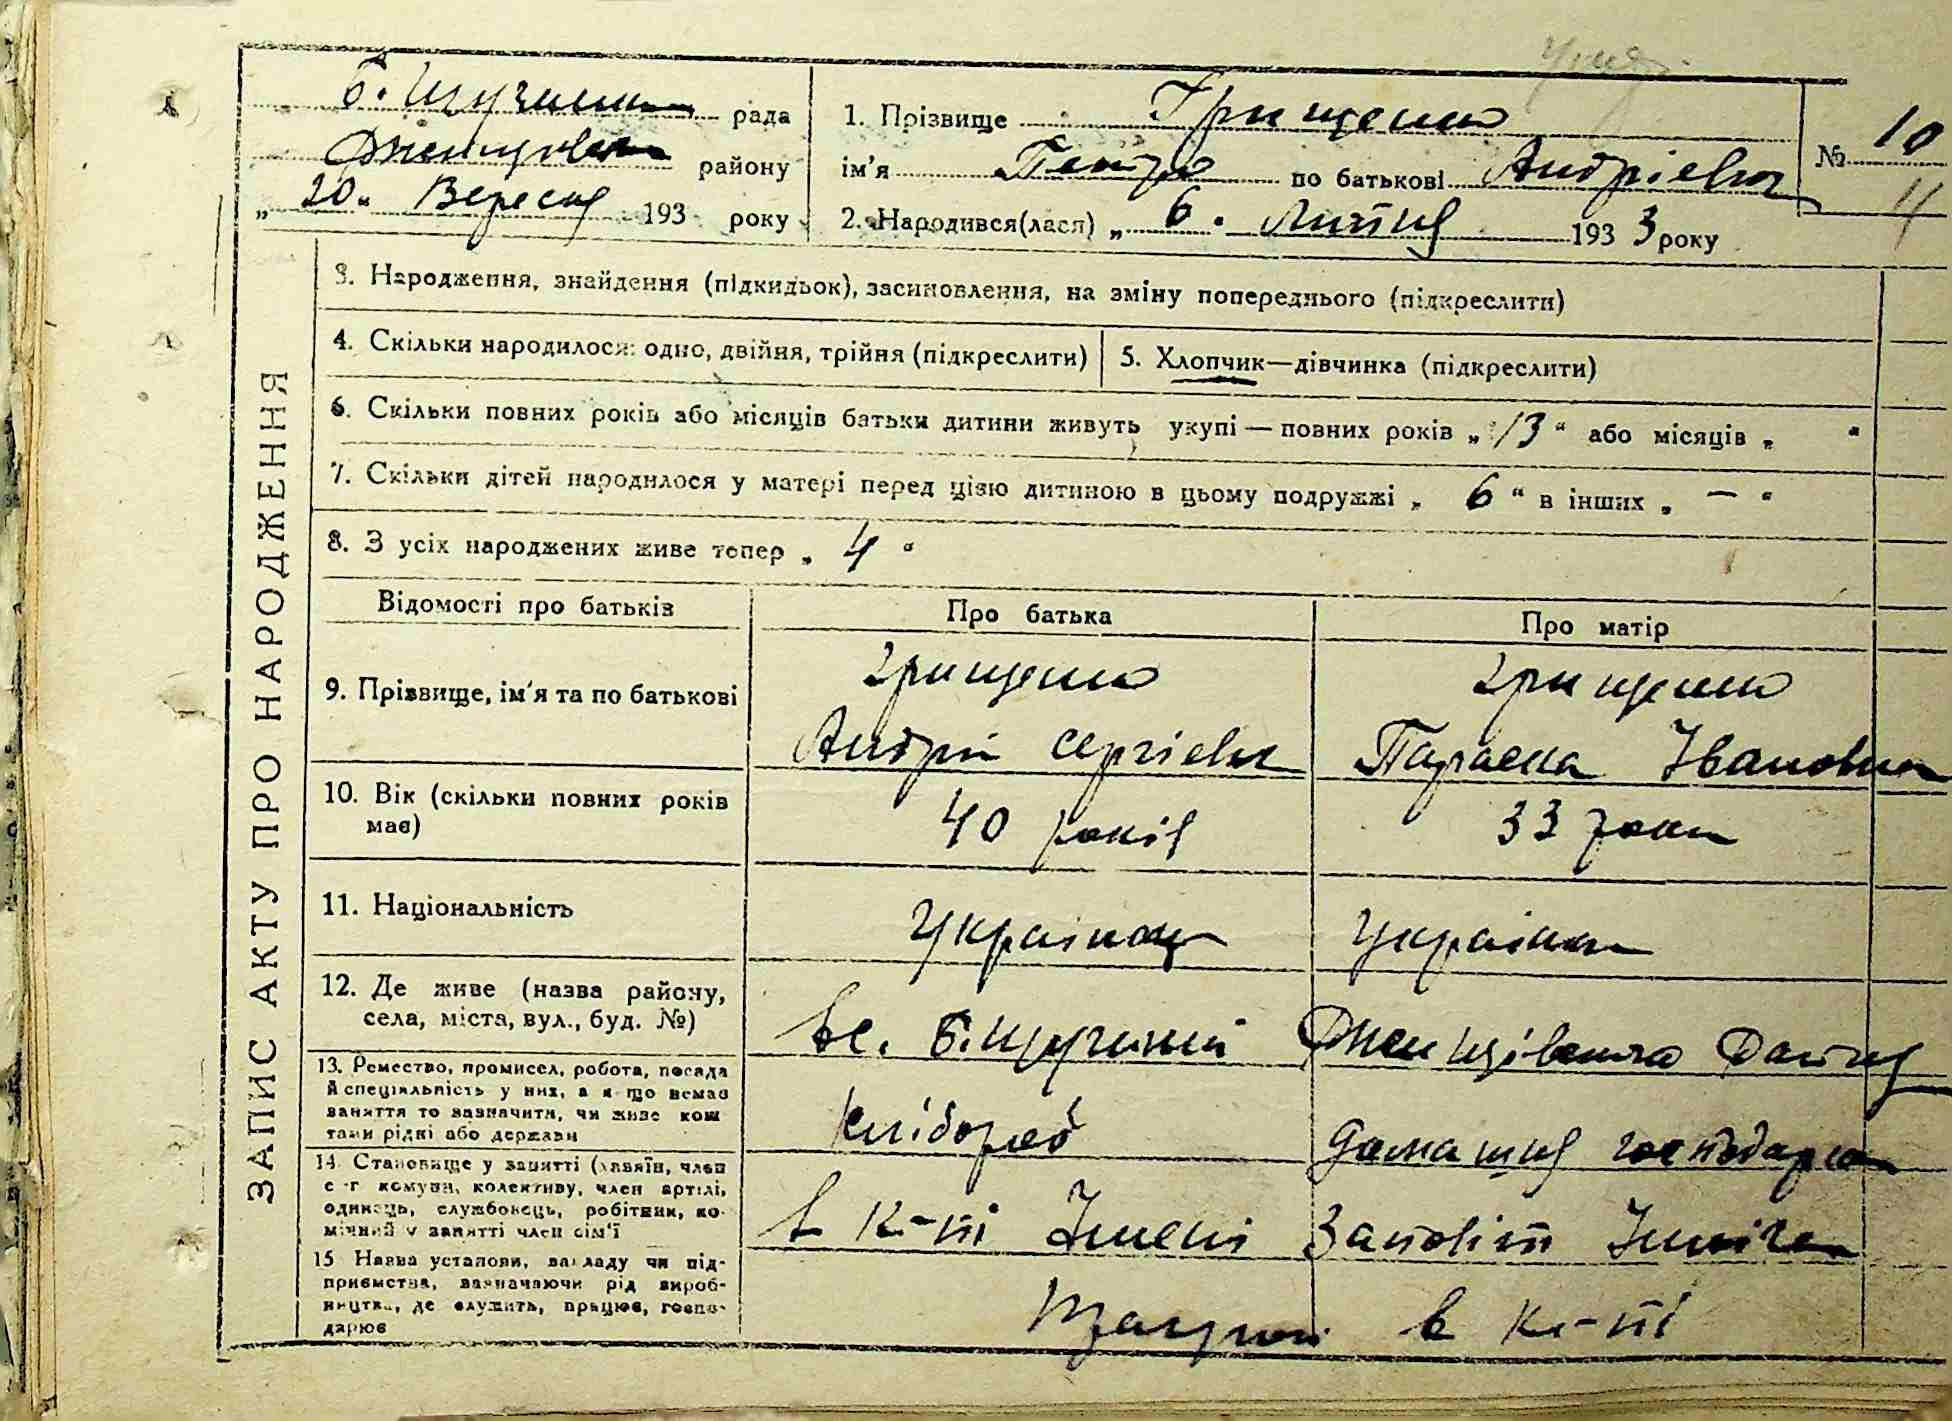 Б. Щучинка рада
району
„ 20 “ Вересня 193 року
1. Прізвище Грищенко
ім'я Петро по батькові Андрієвич
2. Народився(лася) „ 6 . Липня 1933 року
№ 10
11
ЗАПИС АКТУ ПРО НАРОДЖЕННЯ
3. Народження, знайдення (підкидьок), засиновлення, на зміну попереднього (підкреслити)
4. Скільки народилося: одно, двійня, трійня (підкреслити)
5. Хлопчик—дівчинка (підкреслити)
6. Скільки повних років або місяців батьки дитини живуть укупі — повних років „ 13 “ або місяців „ “
7. Скільки дітей народилося у матері перед цією дитиною в цьому подружжі „ 6 “ в інших „ — “
8. З усіх народжених живе тепер „ 4 “
Відомості про батьків
Про батька
Про матір
9. Прізвище, ім'я та по батькові
Грищенко
Андрій Сергієвич
Грищенко
Параска Івановна
10. Вік (скільки повних років
має)
40 років
33 роки
11. Національність
Українец
Українка
12. Де живе (назва району,
села, міста, вул., буд. №)
в с. Б. Щучинці
13. Ремество, промисел, робота, посада
й спеціяльність у них, а якщо немає
заняття то зазначити, чи живе кош
тами рідні або держави
Хлібороб
Домашня господарка
14. Становище у занятті (хазяїн, член
с-г комуни, колективу, член артілі,
одинець, службовець, робітник, по-
мічний у занятті член сім'ї
в к-пі Імені Заповіт Ілліча
15. Назва установи, закладу чи під-
приємства, зазначаючи рід вироб-
ництва, де служить, працює, госпо-
дарює
в к-пі